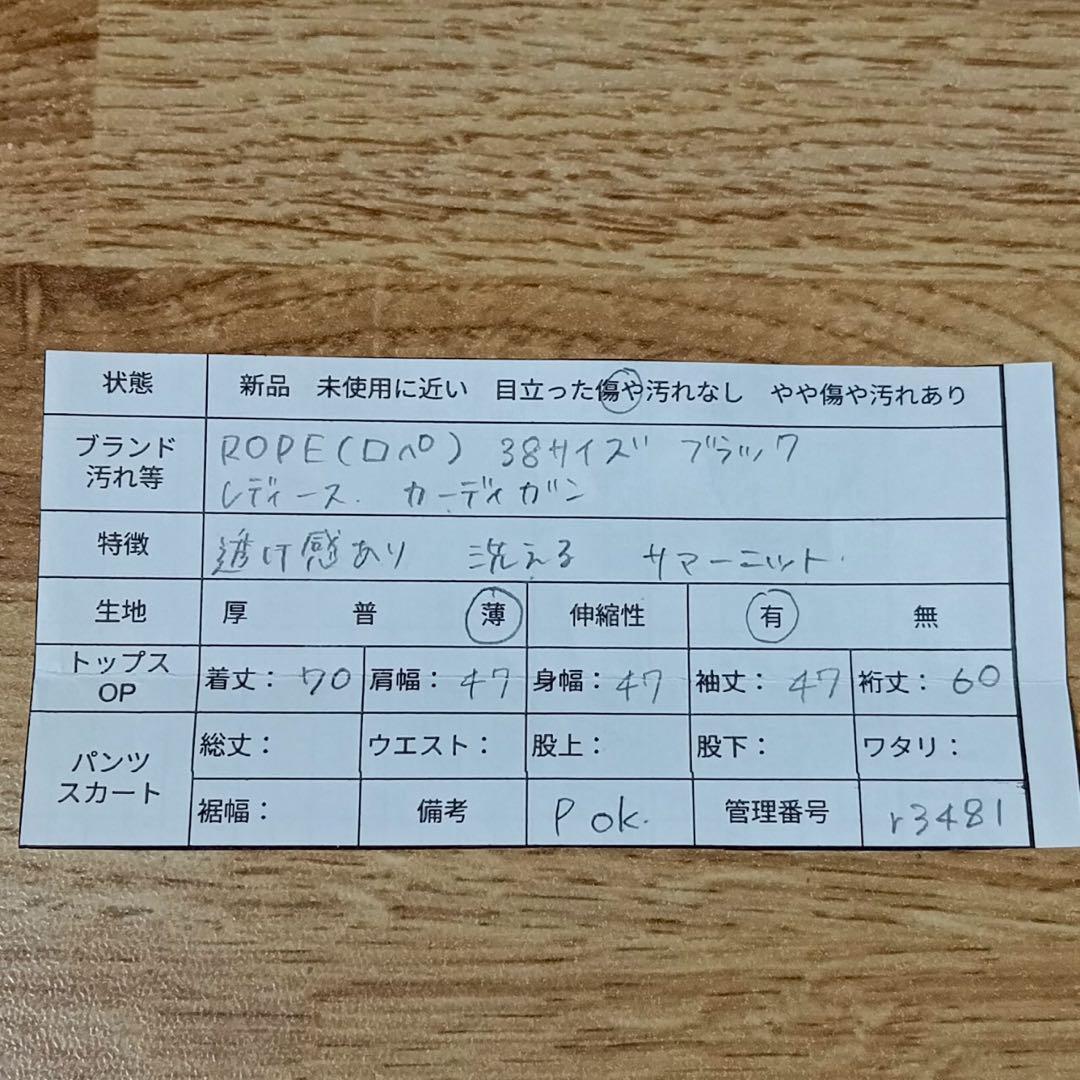 状態 新品 未使用に近い 目立った傷や汚れなし やや傷や汚れあり
ブランド
汚れ等
ROPE(ロペ) 38サイズ ブラック
レディース. カーディガン
特徴 透け感あり 洗える サマーニット.
生地 厚 普 薄 伸縮性 有 無
トップス
OP
着丈: 70 肩幅: 47 身幅: 47 袖丈: 47 裄丈: 60
パンツ
スカート
総丈: ウエスト: 股上: 股下: ワタリ:
裾幅: 備考 P ok. 管理番号 r3481